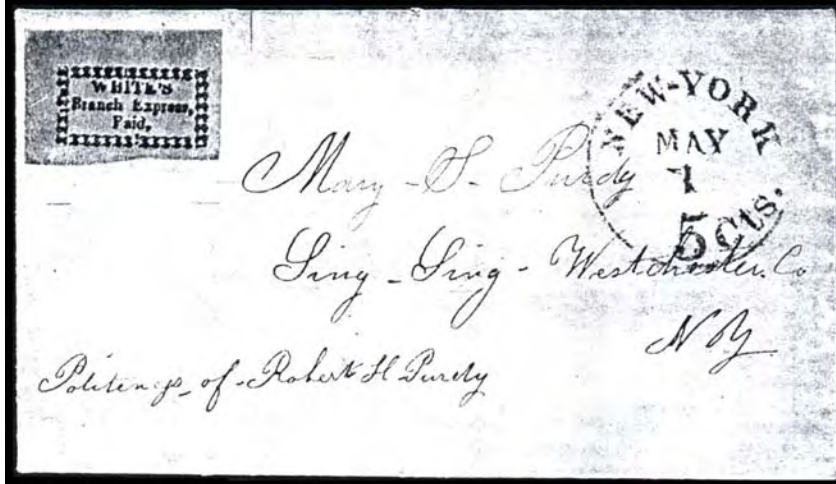 WHITE'S
Branch Express,
Paid,
NEW-YORK
MAY
1
5 Cts.
Mary - S - Purdy
Sing - Sing - Westchester. Co
N Y
Politeness - of - Robert H Purdy